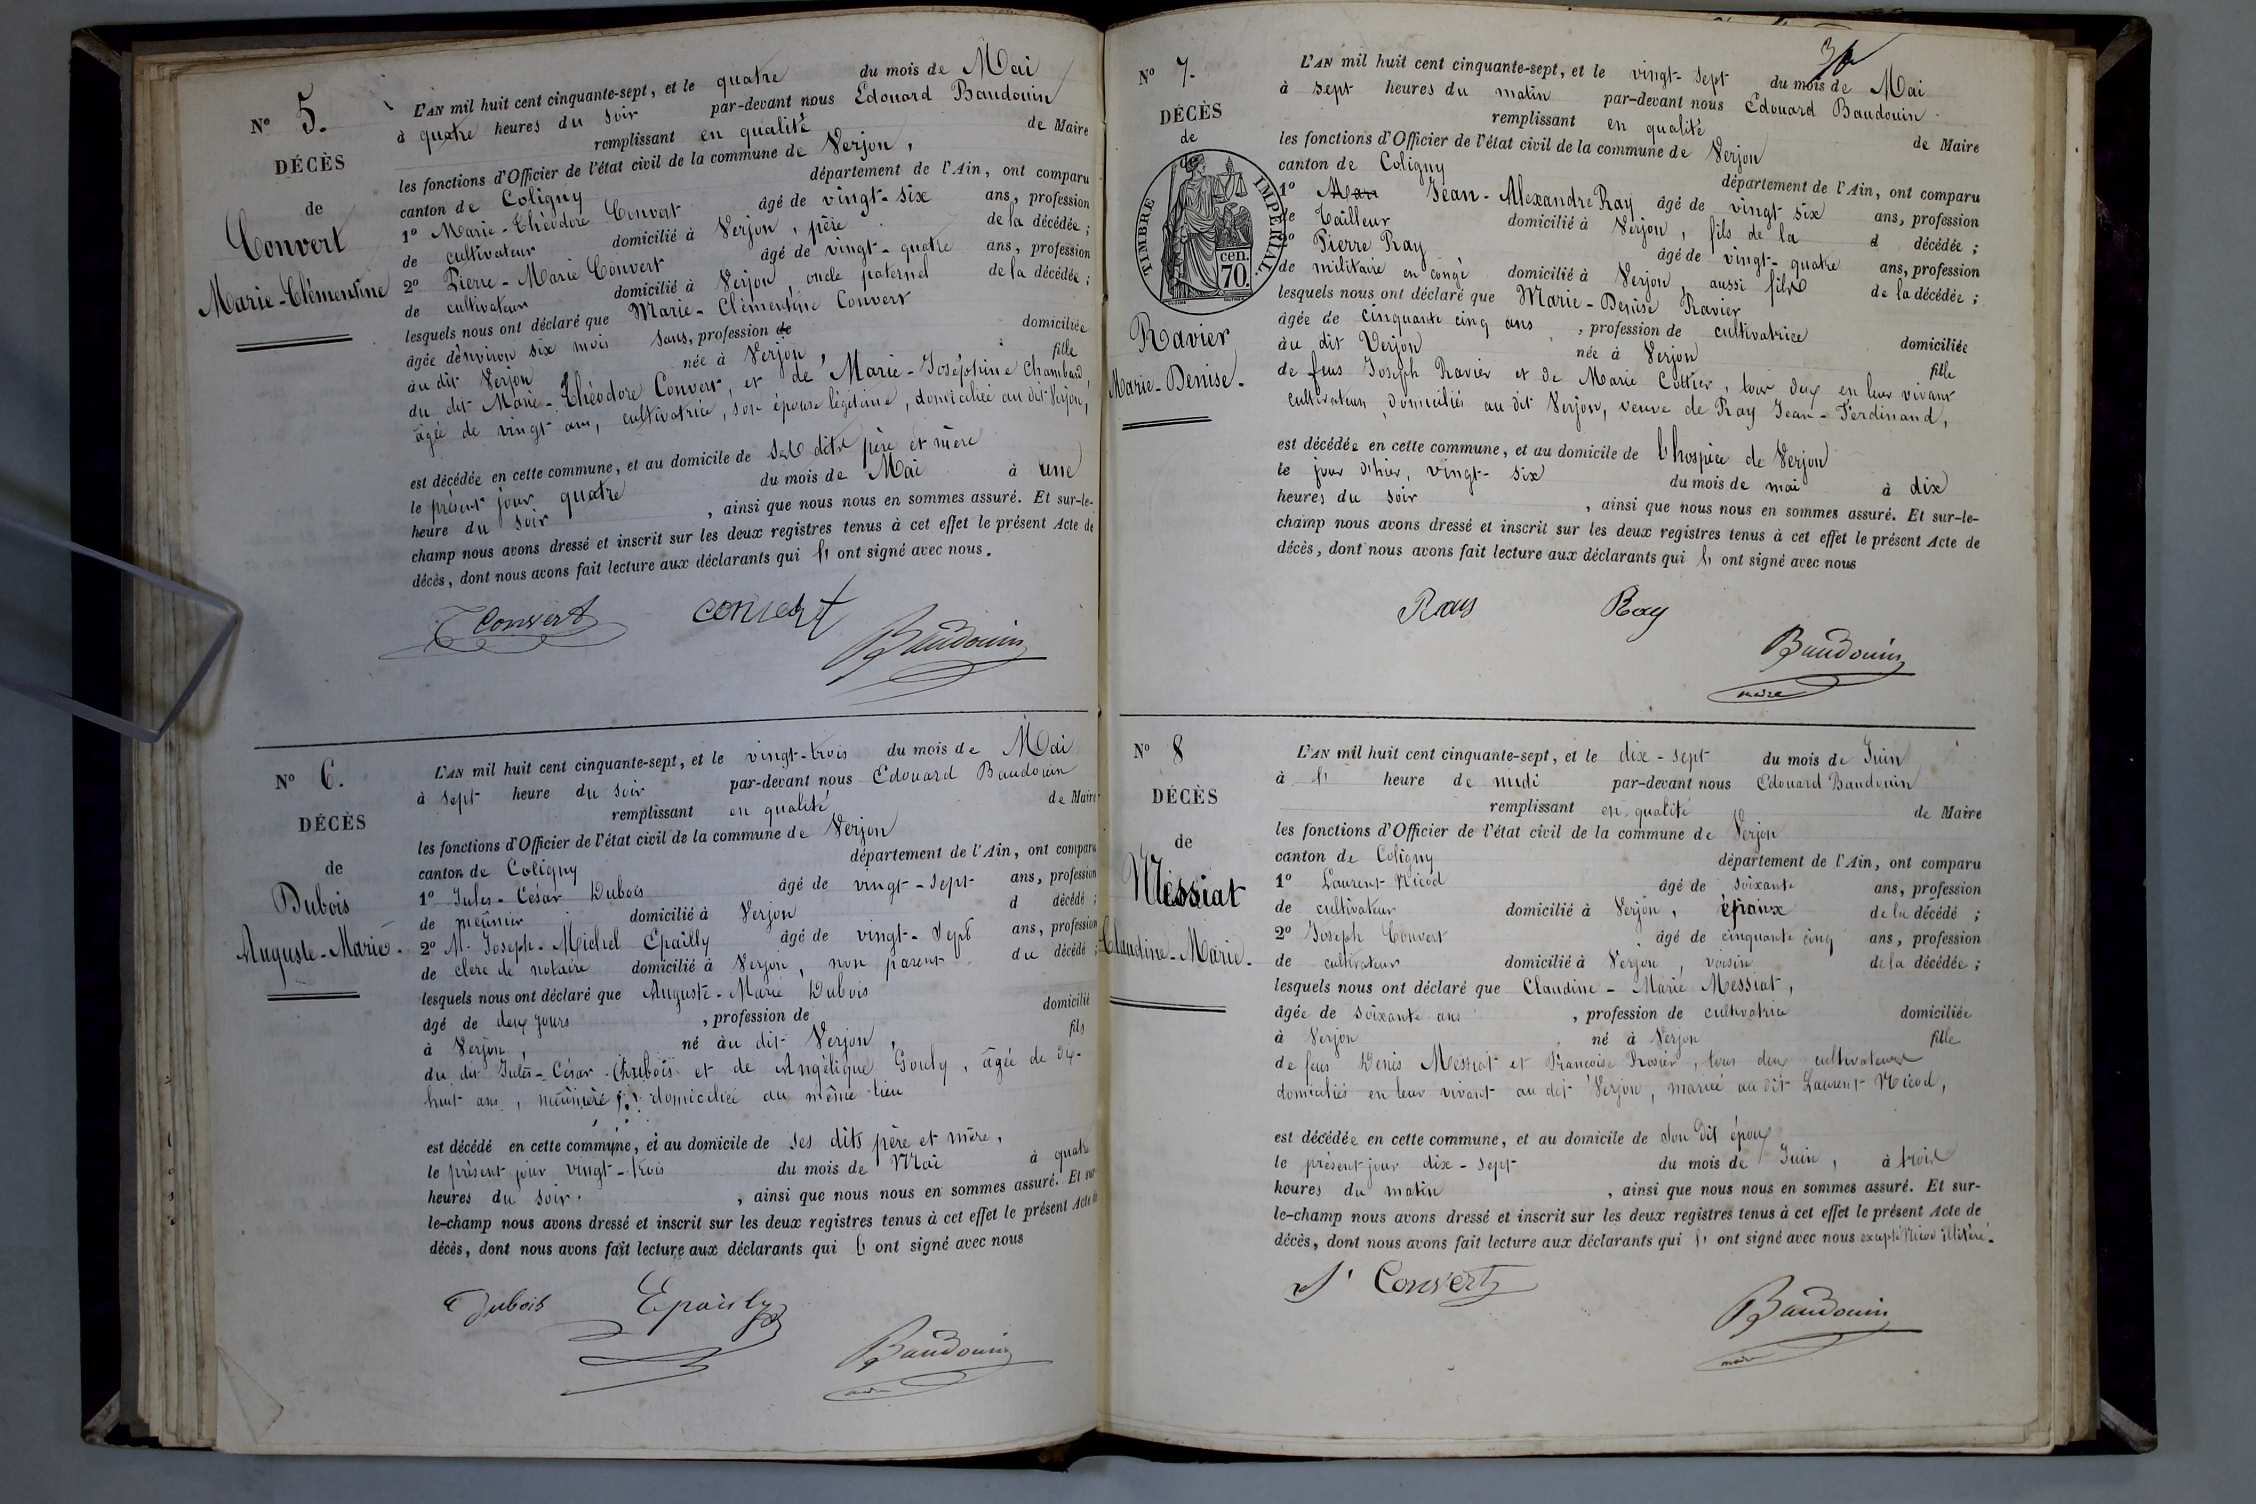 N° 5.
DÉCÈS
de
Convert
Marie-Clémentine
L'AN mil huit cent cinquante-sept, et le quatre du mois de Mai
à quatre heures du soir par-devant nous Edouard Baudouin
remplissant en qualité de Maire
les fonctions d'Officier de l'état civil de la commune de Verjon,
canton de Coligny département de l'Ain, ont comparu
1° Marie-Théodore Convert âgé de vingt-six ans, profession
de cultivateur domicilié à Verjon, père de la décédée;
2° Pierre-Marie Convert âgé de vingt-quatre ans, profession
de cultivateur domicilié à Verjon, oncle paternel de la décédée;
lesquels nous ont déclaré que Marie-Clémentine Convert
âgée d'environ six mois sans, profession de domiciliée
au dit Verjon née à Verjon, fille
du dit Marie-Théodore Convert, et de Marie-Joséphine Chambard,
âgée de vingt ans, cultivatrice, son épouse légitime, domiciliée au dit Verjon,
est décédée en cette commune, et au domicile de ses dits père et mère
le présent jour quatre du mois de Mai à une
heure du soir, ainsi que nous nous en sommes assuré. Et sur-le-
champ nous avons dressé et inscrit sur les deux registres tenus à cet effet le présent Acte de
décès, dont nous avons fait lecture aux déclarants qui ont signé avec nous.
T Convert convert
Baudouin
N° 6.
DÉCÈS
de
Dubois
Auguste-Marie.
L'AN mil huit cent cinquante-sept, et le vingt-trois du mois de Mai
à sept heure du soir par-devant nous Edouard Baudouin
remplissant en qualité de Maire
les fonctions d'Officier de l'état civil de la commune de Verjon
canton de Coligny département de l'Ain, ont comparu
1° Jules-César Dubois âgé de vingt-sept ans, profession
de meûnier domicilié à Verjon d décédé;
2° M. Joseph-Michel Epailly âgé de vingt-sept ans, profession
de clerc de notaire domicilié à Verjon, non parent du décédé;
lesquels nous ont déclaré que Auguste-Marie Dubois
âgé de deux jours, profession de domicilié
à Verjon, né au dit Verjon, fils
du dit Jules-César Dubois et de Angélique Gouly, âgée de dix-
huit ans, meûnière domiciliée au même lieu
est décédé en cette commune, et au domicile de ses dits père et mère,
le présent jour vingt-trois du mois de Mai à quatre
heures du soir., ainsi que nous nous en sommes assuré. Et sur-
le-champ nous avons dressé et inscrit sur les deux registres tenus à cet effet le présent Acte de
décès, dont nous avons fait lecture aux déclarants qui ont signé avec nous
Dubois Epailly
Baudouin
N° 7.
DÉCÈS
de
de
TIMBRE IMPÉRIAL.
cen.
70.
Ravier
Marie-Denise.
L'AN mil huit cent cinquante-sept, et le vingt-sept du mois de Mai
à sept heures du matin par-devant nous Edouard Baudouin
remplissant en qualité de Maire
les fonctions d'Officier de l'état civil de la commune de Verjon
canton de Coligny département de l'Ain, ont comparu
1° Jean-Alexandre Ray âgé de vingt six ans, profession
de tailleur domicilié à Verjon, fils de la d décédée;
2° Pierre Ray âgé de vingt-quatre ans, profession
de militaire en congé domicilié à Verjon, aussi fils de la décédée;
lesquels nous ont déclaré que Marie-Denise Ravier
âgée de cinquante cinq ans, profession de cultivatrice domiciliée
au dit Verjon née à Verjon fille
de feus Joseph Ravier et de Marie Cottier, tous deux en leur vivant
cultivateurs domiciliés au dit Verjon, veuve de Ray Jean-Ferdinand,
est décédée en cette commune, et au domicile de l'hospice de Verjon
le jour d'hier, vingt-six du mois de mai à dix
heures du soir, ainsi que nous nous en sommes assuré. Et sur-le-
champ nous avons dressé et inscrit sur les deux registres tenus à cet effet le présent Acte de
décès, dont nous avons fait lecture aux déclarants qui ont signé avec nous
Ray Ray
Baudouin
maire
N° 8
DÉCÈS
de
Messiat
Claudine-Marie.
L'AN mil huit cent cinquante-sept, et le dix-sept du mois de Juin
à heure de midi par-devant nous Edouard Baudouin
remplissant en qualité de Maire
les fonctions d'Officier de l'état civil de la commune de Verjon
canton de Coligny département de l'Ain, ont comparu
1° Laurent Nicod âgé de soixante ans, profession
de cultivateur domicilié à Verjon, époux de la décédé;
2° Joseph Convert âgé de cinquante cinq ans, profession
de cultivateur domicilié à Verjon, voisin de la décédée;
lesquels nous ont déclaré que Claudine-Marie Messiat,
âgée de soixante ans, profession de cultivatrice domiciliée
à Verjon né à Verjon fille
de feus Denis Messiat et Françoise Ravier, tous deux cultivateurs
domiciliés en leur vivant au dit Verjon, mariée au dit Laurent Nicod,
est décédée en cette commune, et au domicile de son dit époux
le présent jour dix-sept du mois de Juin, à trois
heures du matin, ainsi que nous nous en sommes assuré. Et sur-
le-champ nous avons dressé et inscrit sur les deux registres tenus à cet effet le présent Acte de
décès, dont nous avons fait lecture aux déclarants qui ont signé avec nous excepté Nicod illitéré.
J Convert
Baudouin
maire